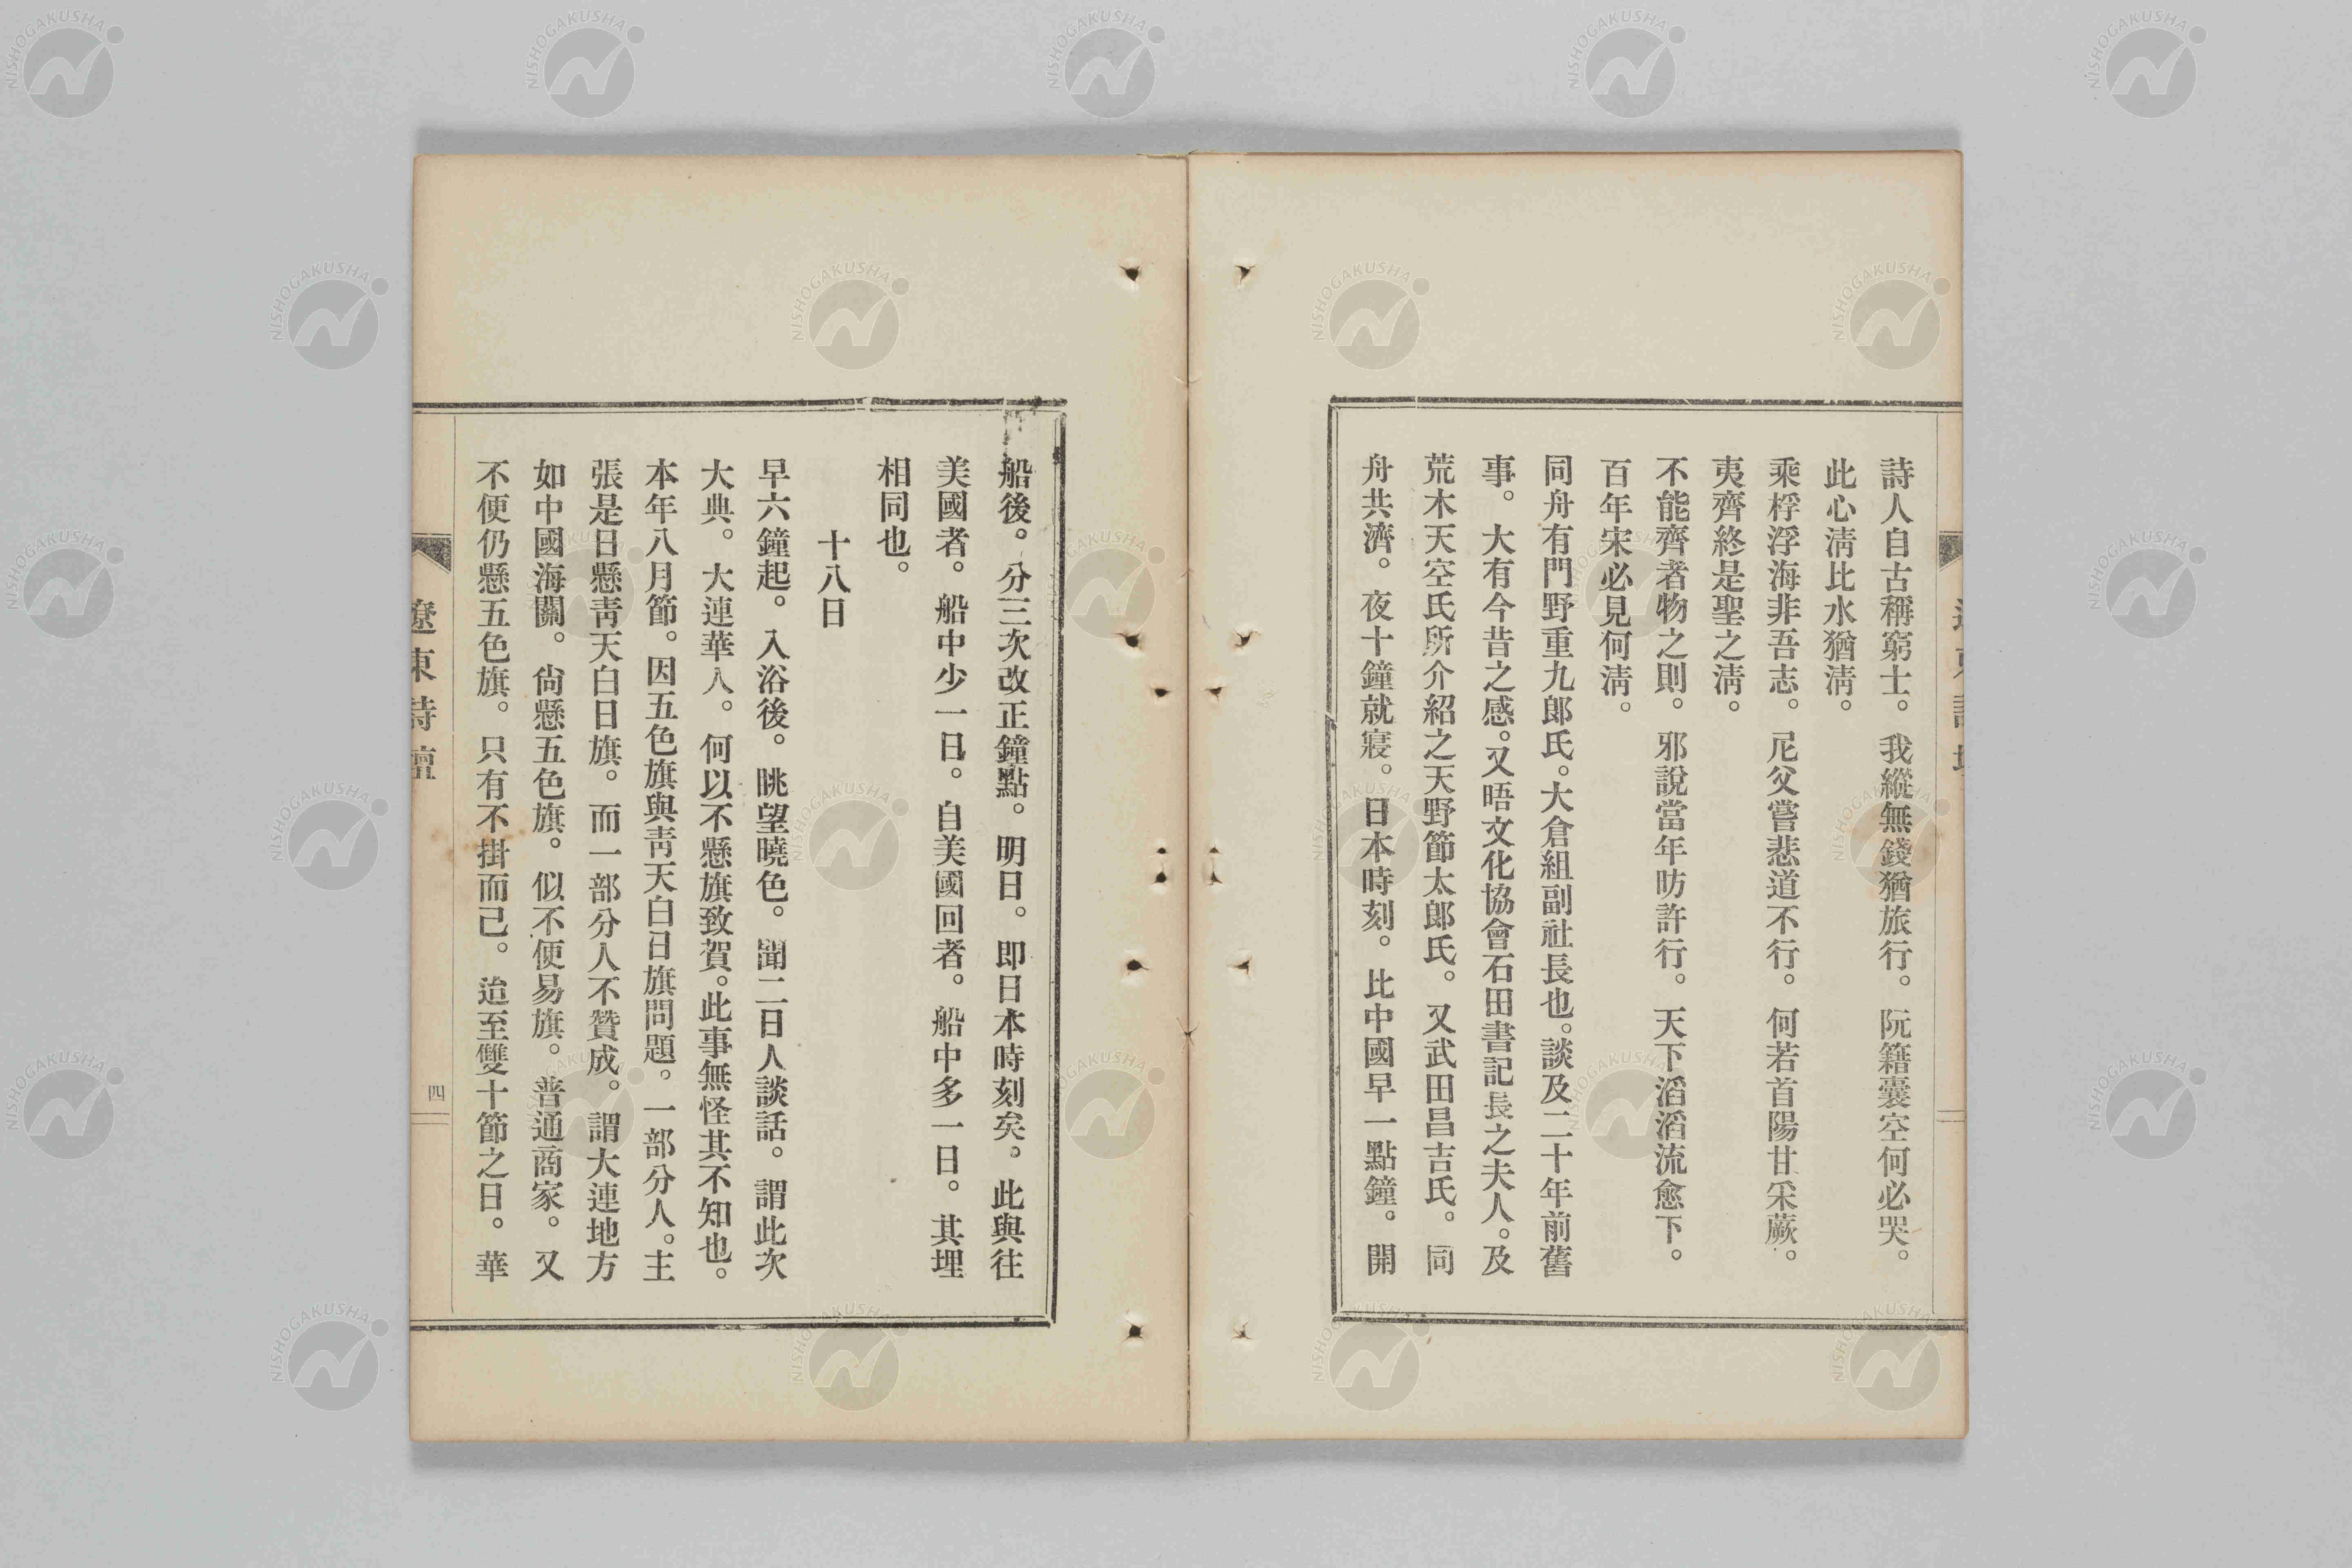 詩人自古稱窮士。我縱無錢猶旅行。阮籍囊空何必哭。
此心淸比水猶淸。
乘桴浮海非吾志。尼父嘗悲道不行。何若首陽甘采蕨。
夷齊終是聖之淸。
不能齊者物之則。邪說當年昉許行。天下滔滔流愈下。
百年宋必見何淸。
同舟有門野重九郎氏。大倉組副社長也。談及二十年前舊
事。大有今昔之感。又晤文化協會石田書記長之夫人。及
荒木天空氏所介紹之天野節太郎氏。又武田昌吉氏。同
舟共濟。夜十鐘就寢。日本時刻。比中國早一點鐘。開
船後。分三次改正鐘點。明日。即日本時刻矣。此與往
美國者。船中少一日。自美國回者。船中多一日。其埋
相同也。
十八日
早六鐘起。入浴後。眺望曉色。聞二日人談話。謂此次
大典。大連華人。何以不懸旗致賀。此事無怪其不知也。
本年八月節。因五色旗與靑天白日旗問題。一部分人。主
張是日懸靑天白日旗。而一部分人不贊成。謂大連地方
如中國海關。尙懸五色旗。似不便易旗。普通商家。又
不便仍懸五色旗。只有不掛而已。迨至雙十節之日。華
遼東詩壇
四
NISHOGAKUSHA